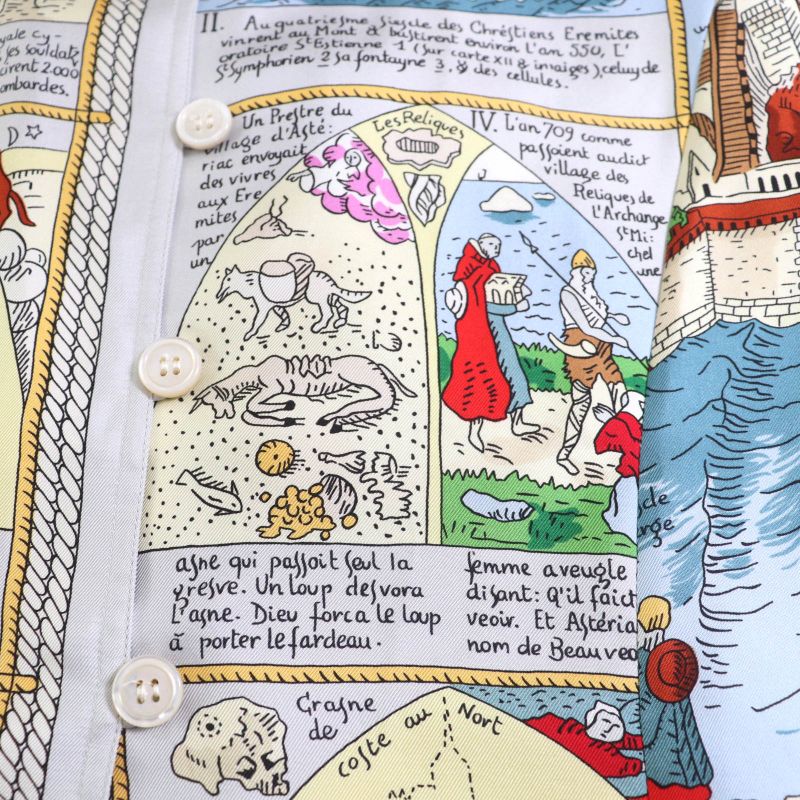 yale cy-
les souldatz
irent 2000
ombardes.
D
II. Au quatriesme siecle des Chréstiens Eremites
vinrent au Mont & bastirent environ l'an 550, L'
oratoire St Estienne 1 (sur carte XII & imaiges), celuy de
St Symphorien 2 sa fontayne 3, & des cellules.
Un Prestre du
village d'Asté:
riac envoyait
des vivres
aux Ere
mites
par
un
Les Reliques
IV. L'an 709 comme
passoient audict
village des
Reliques de
L'Archange
St Mi
chel
une
asne qui passoit seul la
gresve. Un loup desvora
L'asne. Dieu forca le loup
à porter le fardeau.
femme aveugle
disant: Q'il faict
veoir. Et Astéria
nom de Beauveo
Crasne
de
coste au Nort